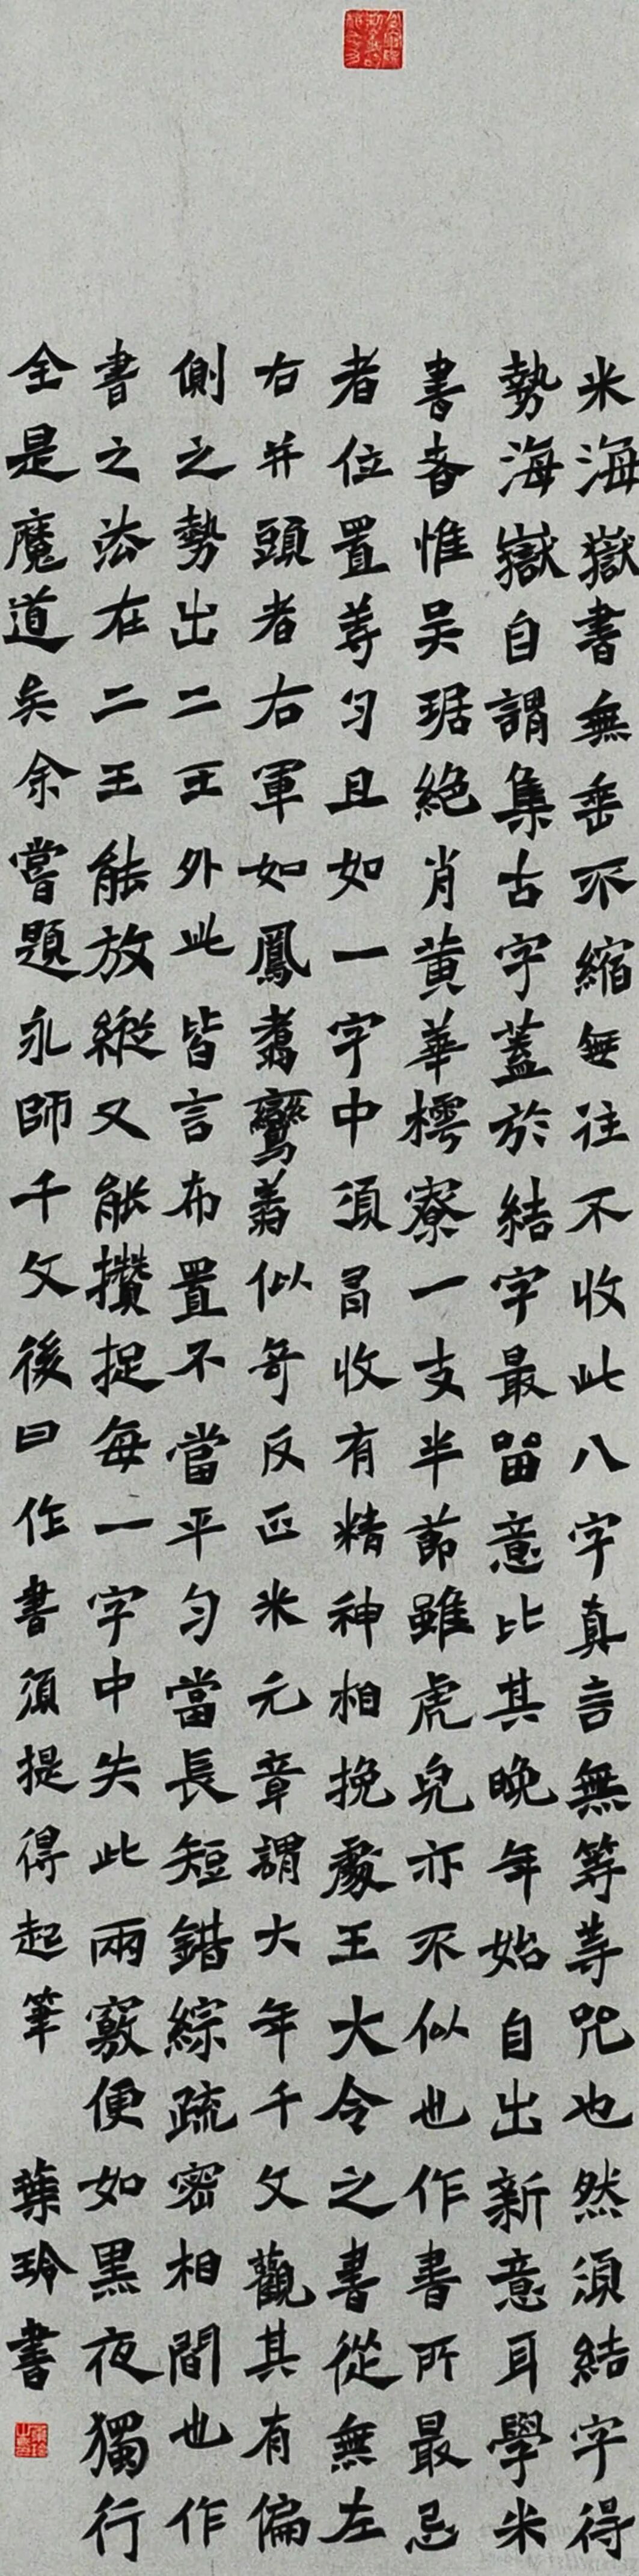 米海嶽書無垂不縮無往不收此八字真言無等等咒也然須結字得
勢海嶽自謂集古字蓋於結字最留意比其晚年始自出新意耳學米
書者惟吳琚絕肖黃華樗寮一支半節雖虎兒亦不似也作書所最忌
者位置等勻且如一字中須有收有精神相挽處王大令之書從無左
右并頭者右軍如鳳翥鸞翥似奇反正米元章謂大年千文觀其有偏
側之勢出二王外此皆言布置不當平勻當長短錯綜疏密相間也作
書之法在二王能放縱又能攢捉每一字中失此兩竅便如黑夜獨行
全是魔道矣余嘗題永師千文後曰作書須提得起筆
葉玲書